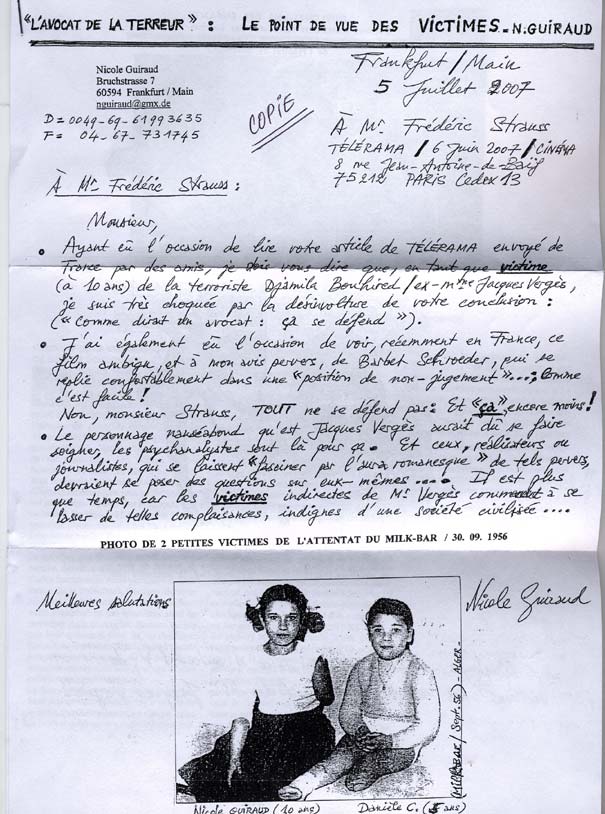 "L'AVOCAT DE LA TERREUR" : LE POINT DE VUE DES VICTIMES - N. GUIRAUD
Nicole Guiraud
Bruchstrasse 7
60594 Frankfurt / Main
nguiraud@gmx.de
D = 0049-69-61993635
F = 04-67-731745
COPIE
Frankfurt / Main
5 Juillet 2007
À Mr Frédéric Strauss
TÉLÉRAMA / 6 Juin 2007 / CINÉMA
8 rue Jean-Antoine-de-Baïf
75212 PARIS Cedex 13
À Mr Frédéric Strauss :
Monsieur,
• Ayant eû l'occasion de lire votre article de TÉLÉRAMA envoyé de
France par des amis, je dois vous dire que, en tant que victime
(à 10 ans) de la terroriste Djamila Bouhired / ex-Mme Jacques Vergès,
je suis très choquée par la désinvolture de votre conclusion :
(« Comme dirait un avocat : ça se défend »).
• J'ai également eû l'occasion de voir, récemment en France, ce
film ambigu, et à mon avis pervers, de Barbet Schroeder, qui se
replie confortablement dans une « position de non-jugement »...; Comme
c'est facile !
Non, monsieur Strauss, TOUT ne se défend pas. Et « ça », encore moins !
• Le personnage nauséabond qu'est Jacques Vergès aurait dû se faire
soigner, les psychanalystes sont là pour ça. Et ceux, réalisateurs ou
journalistes, qui se laissent « fasciner par l'aura romanesque » de tels pervers,
devraient se poser des questions sur eux-mêmes .... Il est plus
que temps, car les victimes indirectes de Mr Vergès commencent à se
lasser de telles complaisances, indignes d'une société civilisée ....
PHOTO DE 2 PETITES VICTIMES DE L'ATTENTAT DU MILK-BAR / 30. 09. 1956
Meilleures salutations
Nicole Guiraud
(MILK-BAR / Sept. 56) - ALGER -
Nicole GUIRAUD (10 ans)
Danièle C. (5 ans)